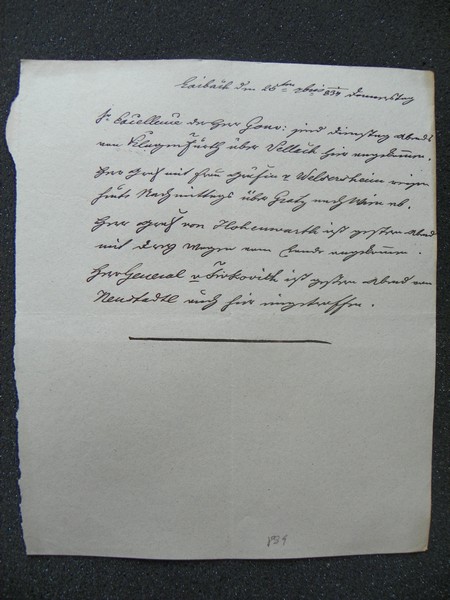 Laibach den 25ten 834 Donnerstag
Sr Excellence der Herr Gouv: sind Dienstag Abends
von Klagenfurth über Vellach hier angekommen.
Herr Graf mit Frau Gräfin v Welsersheim reisen
heute Nachmittags über Gratz nach Wien ab.
Herr Graf von Hohenwarth ist gestern Abend
mit Wagen vom Lande angekommen.
Herr General v ist gestern Abend von
Neustadtl auch hier eingetroffen.
834